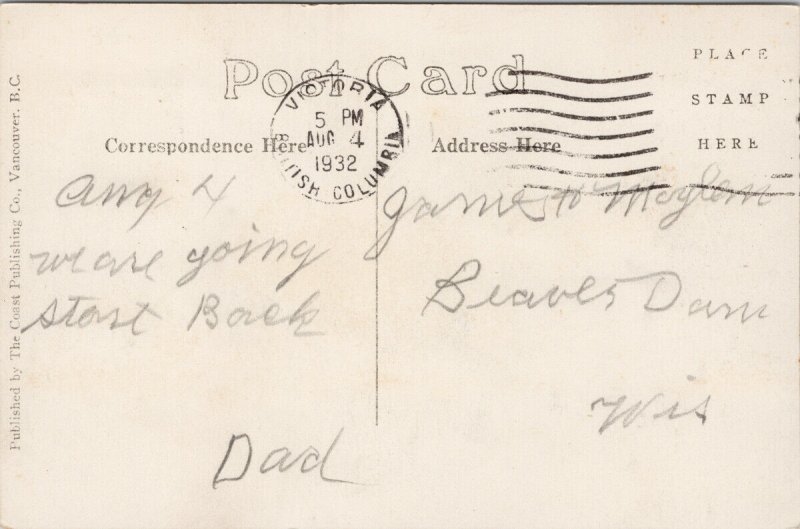 Post Card
PLACE
STAMP
HERE
VICTORIA
5 PM
AUG 4
1932
BRITISH COLUMBIA
Correspondence Here
Address Here
Aug 4
we are going
start Back
Dad
James H
Beaver Dam
Wis
Published by The Coast Publishing Co., Vancouver, B.C.